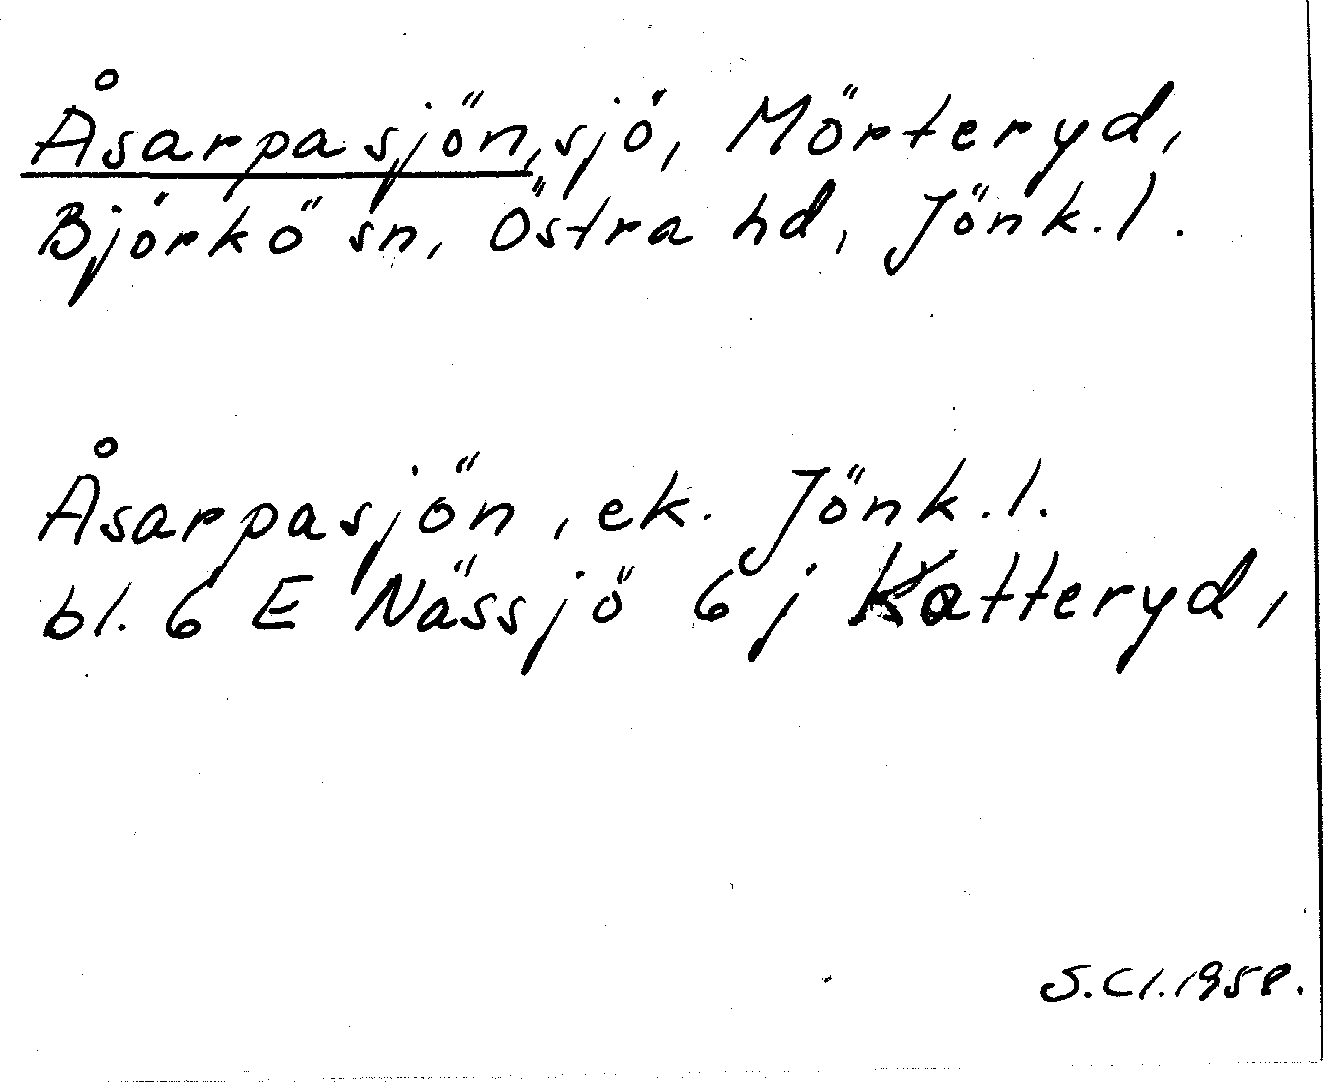 Åsarpasjön, sjö, Mörteryd,
Björkö sn, Östra hd, Jönk.l.
Åsarpasjön, ek. Jönk.l.
bl. 6 E Nässjö 6 j Katteryd,
S.Cl.1958.